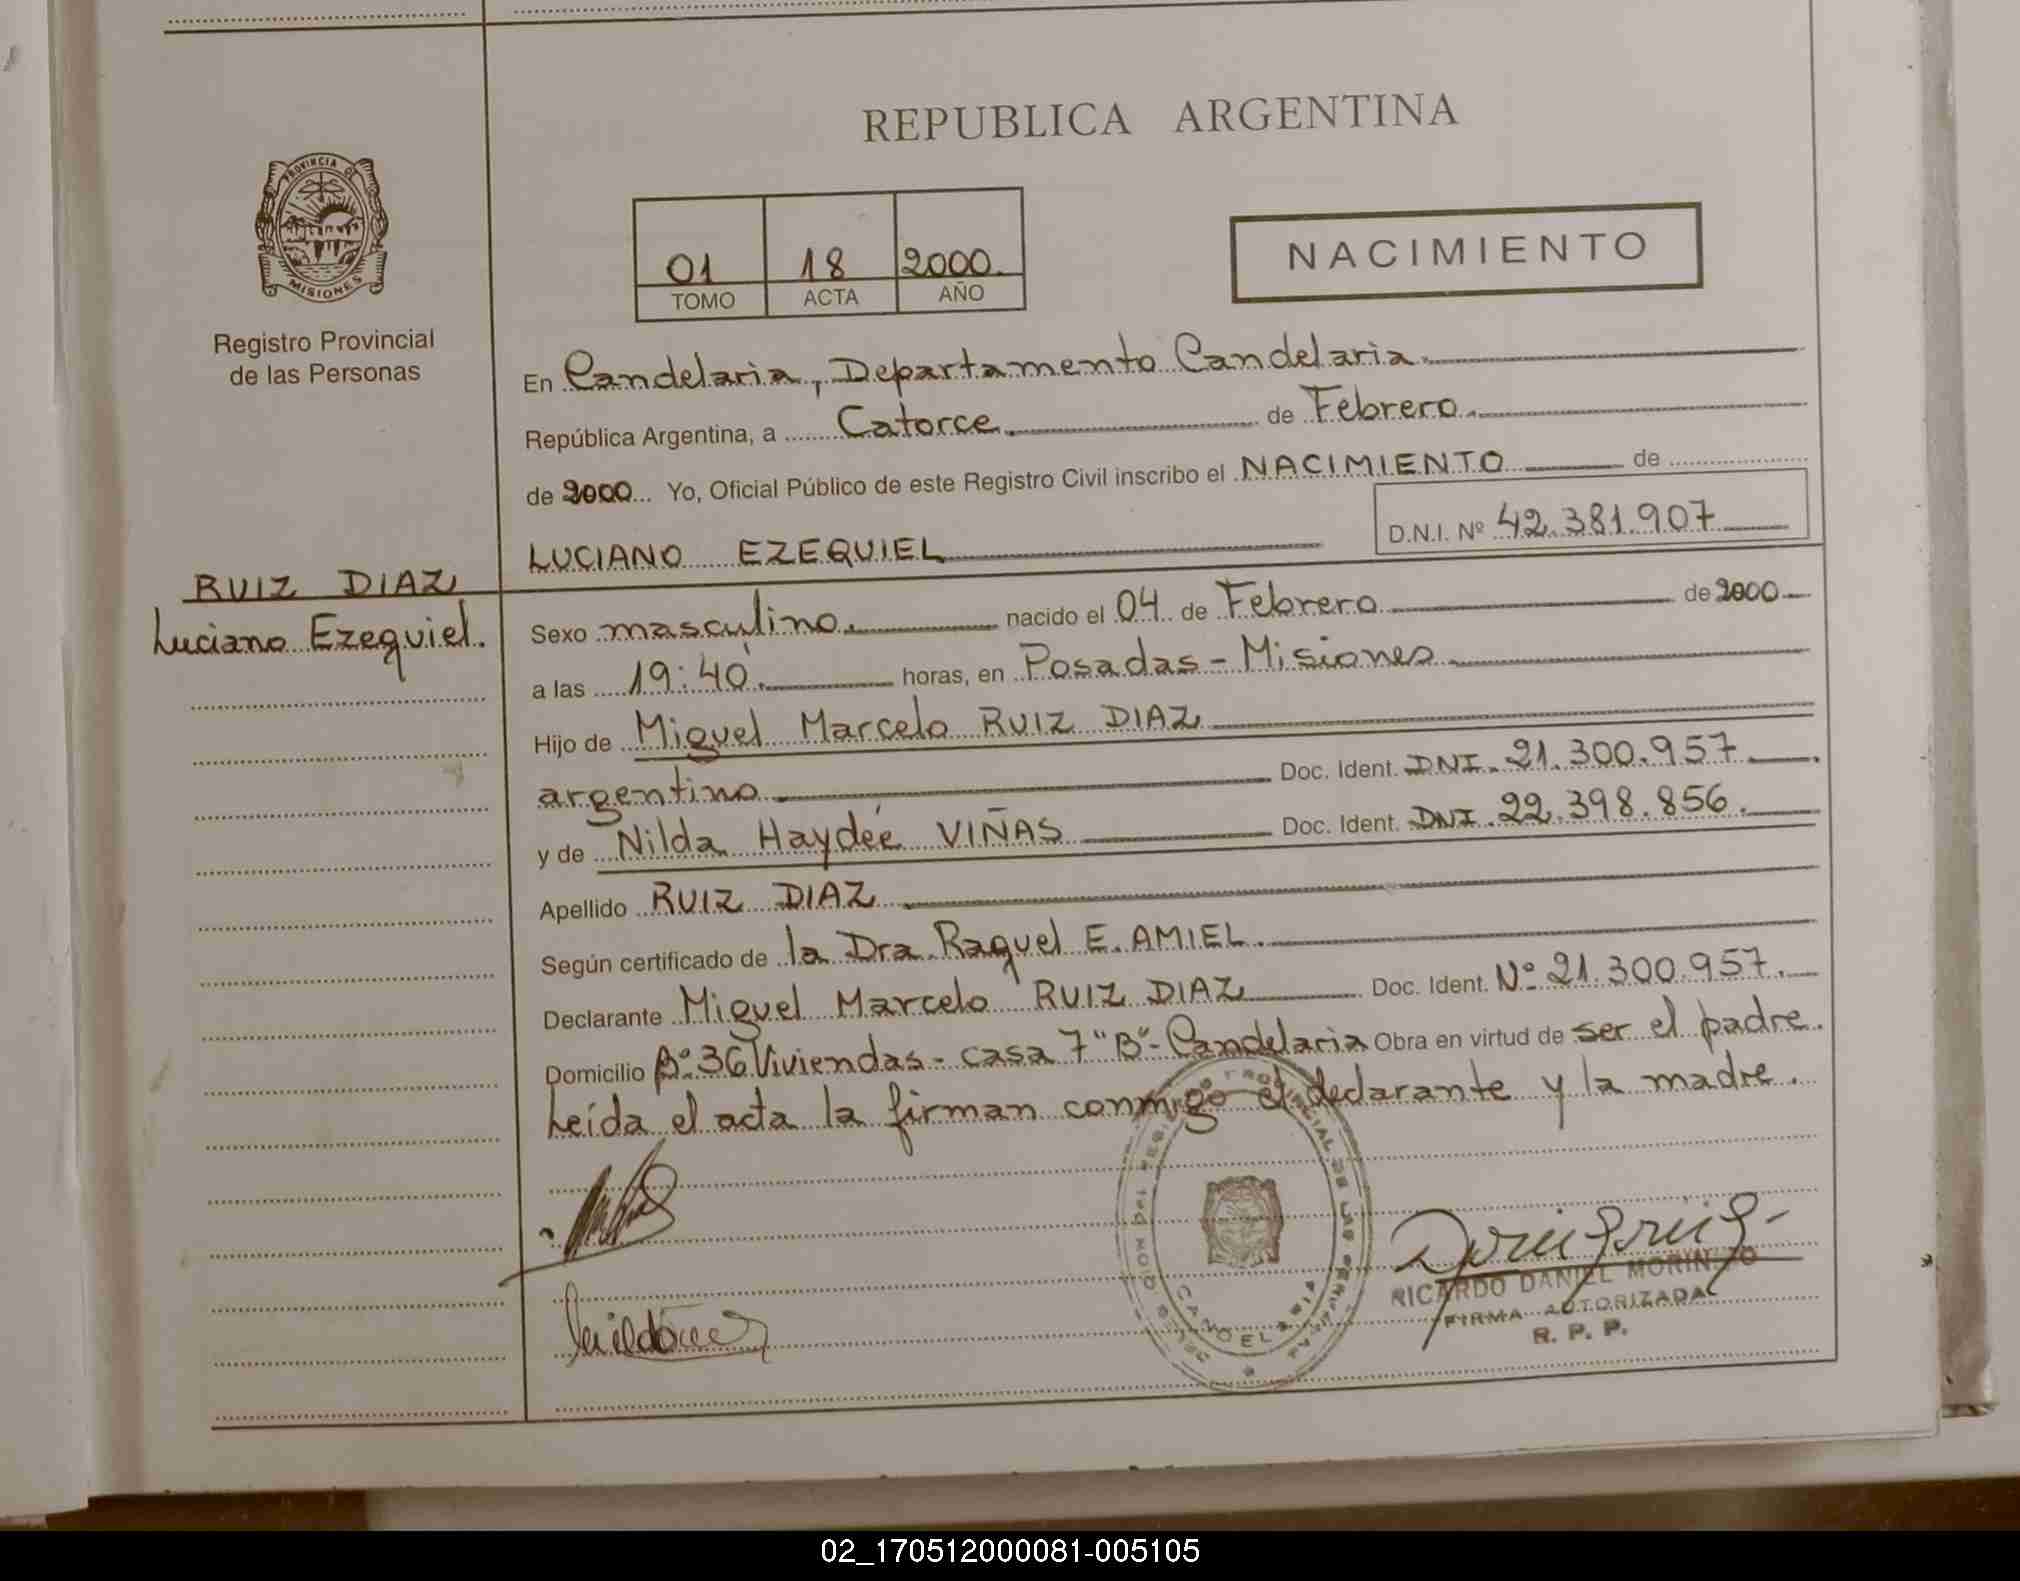 REPUBLICA ARGENTINA
PROVINCIA DE
MISIONES
Registro Provincial
de las Personas
01 18 2000
TOMO ACTA AÑO
NACIMIENTO
En Candelaria, Departamento Candelaria
República Argentina, a Catorce de Febrero
de 2000 Yo, Oficial Público de este Registro Civil inscribo el NACIMIENTO de
LUCIANO EZEQUIEL D.N.I. Nº 42.381.907
RUIZ DIAZ
Luciano Ezequiel.
Sexo masculino. nacido el 04 de Febrero de 2000
a las 19:40. horas, en Posadas - Misiones
Hijo de Miguel Marcelo RUIZ DIAZ
argentino Doc. Ident. DNI. 21.300.957
y de Nilda Haydeé VIÑAS Doc. Ident. DNI. 22.398.856.
Apellido RUIZ DIAZ
Según certificado de la Dra. Raquel E. AMIEL.
Declarante Miguel Marcelo RUIZ DIAZ Doc. Ident. Nº 21.300.957.
Domicilio Bº 36 Viviendas - casa 7 "B" - Candelaria Obra en virtud de ser el padre.
Leída el acta la firman conmigo el declarante y la madre.
RICARDO DANIEL
FIRMA AUTORIZADA
R. P. P.
02_170512000081-005105